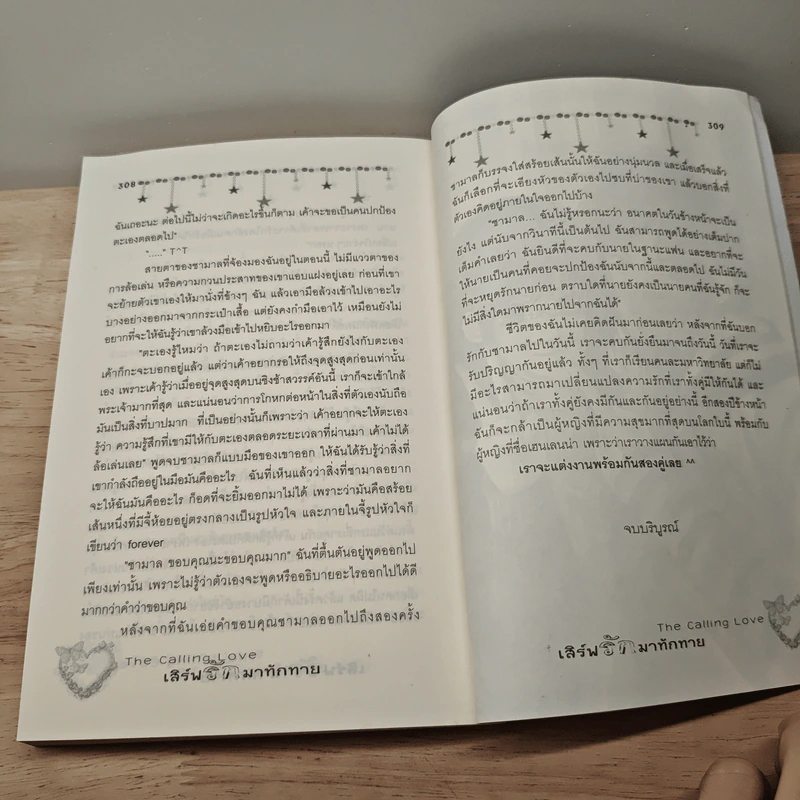 308
ฉันเถอะนะ ต่อไปนี้ไม่ว่าจะเกิดอะไรขึ้นก็ตาม เค้าจะขอเป็นคนปกป้อง
ตะเองตลอดไป"
"....." T^T
สายตาของซามาลที่จ้องมองฉันอยู่ในตอนนี้ ไม่มีแววตาของ
การล้อเล่น หรือความกวนประสาทของเขาแอบแฝงอยู่เลย ก่อนที่เขา
จะย้ายตัวเขาเองให้มานั่งที่ข้างๆ ฉัน แล้วเอามือล้วงเข้าไปเอาอะไร
บางอย่างออกมาจากกระเป๋าเสื้อ แต่ยังคงกำมือเอาไว้ เหมือนยังไม่
อยากที่จะให้ฉันรู้ว่าเขาล้วงมือเข้าไปหยิบอะไรออกมา
"ตะเองรู้ไหมว่า ถ้าตะเองไม่ถามว่าเค้ารู้สึกยังไงกับตะเอง
เค้าก็กะจะบอกอยู่แล้ว แต่ว่าเค้าอยากรอให้ถึงจุดสูงสุดก่อนเท่านั้น
เอง เพราะเค้ารู้ว่าเมื่ออยู่จุดสูงสุดบนชิงช้าสวรรค์อันนี้ เราก็จะเข้าใกล้
พระเจ้ามากที่สุด และแน่นอนว่าการโกหกต่อหน้าในสิ่งที่ตัวเองนับถือ
มันเป็นสิ่งที่บาปมาก ที่เป็นอย่างนั้นก็เพราะว่า เค้าอยากจะให้ตะเอง
รู้ว่า ความรู้สึกที่เขามีให้กับตะเองตลอดระยะเวลาที่ผ่านมา เค้าไม่ได้
ล้อเล่นเลย" พูดจบซามาลก็แบบมือของเขาออก ให้ฉันได้รับรู้ว่าสิ่งที่
เขากำลังถืออยู่ในมือมันคืออะไร ฉันที่เห็นแล้วว่าสิ่งที่ซามาลอยาก
จะให้ฉันมันคืออะไร ก็อดที่จะยิ้มออกมาไม่ได้ เพราะว่ามันคือสร้อย
เส้นหนึ่งที่มีจี้ห้อยอยู่ตรงกลางเป็นรูปหัวใจ และภายในจี้รูปหัวใจก็
เขียนว่า forever
"ซามาล ขอบคุณนะขอบคุณมาก" ฉันที่ตื้นตันอยู่พูดออกไป
เพียงเท่านั้น เพราะไม่รู้ว่าตัวเองจะพูดหรืออธิบายอะไรออกไปได้ดี
มากกว่าคำว่าขอบคุณ
หลังจากที่ฉันเอ่ยคำขอบคุณซามาลออกไปถึงสองครั้ง
The Calling Love
เสิร์ฟรักมาทักทาย
309
ซามาลก็บรรจงใส่สร้อยเส้นนั้นให้ฉันอย่างนุ่มนวล และเมื่อเสร็จแล้ว
ฉันก็เลือกที่จะเอียงหัวของตัวเองไปซบที่บ่าของเขา แล้วบอกสิ่งที่
ตัวเองคิดอยู่ภายในใจออกไปบ้าง
"ซามาล... ฉันไม่รู้หรอกนะว่า อนาคตในวันข้างหน้าจะเป็น
ยังไง แต่นับจากวินาทีนี้เป็นต้นไป ฉันสามารถพูดได้อย่างเต็มปาก
เต็มคำเลยว่า ฉันยินดีที่จะคบกับนายในฐานะแฟน และอยากที่จะ
ให้นายเป็นคนที่คอยจะปกป้องฉันนับจากนี้และตลอดไป ฉันไม่มีวัน
ที่จะหยุดรักนายก่อน ตราบใดที่นายยังคงเป็นนายคนที่ฉันรู้จัก ก็จะ
ไม่มีสิ่งใดมาพรากนายไปจากฉันได้"
ชีวิตของฉันไม่เคยคิดฝันมาก่อนเลยว่า หลังจากที่ฉันบอก
รักกับซามาลไปในวันนี้ เราจะคบกันยังยืนมาจนถึงวันนี้ วันที่เราจะ
รับปริญญากันอยู่แล้ว ทั้งๆ ที่เราก็เรียนคนละมหาวิทยาลัย แต่ก็ไม่
มีอะไรสามารถมาเปลี่ยนแปลงความรักที่เราทั้งคู่มีให้กันได้ และ
แน่นอนว่าถ้าเราทั้งคู่ยังคงมีกันและกันอยู่อย่างนี้ อีกสองปีข้างหน้า
ฉันก็จะกล้าเป็นผู้หญิงที่มีความสุขมากที่สุดบนโลกใบนี้ พร้อมกับ
ผู้หญิงที่ชื่อเฮนเลนน่า เพราะว่าเราวางแผนกันเอาไว้ว่า
เราจะแต่งงานพร้อมกันสองคู่เลย ^^
จบบริบูรณ์
The Calling Love
เสิร์ฟรักมาทักทาย